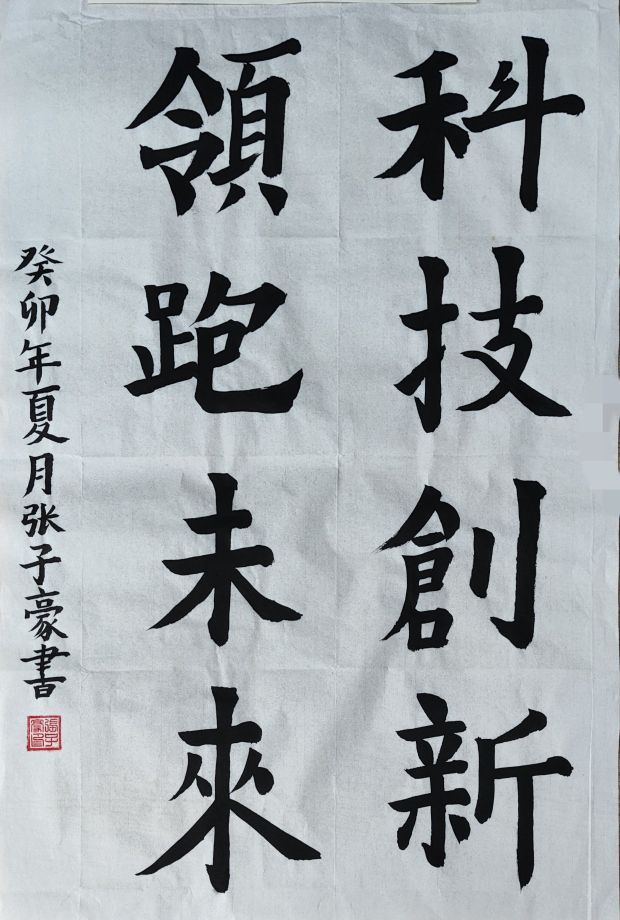 科技創新
領跑未來
癸卯年夏月张子豪書